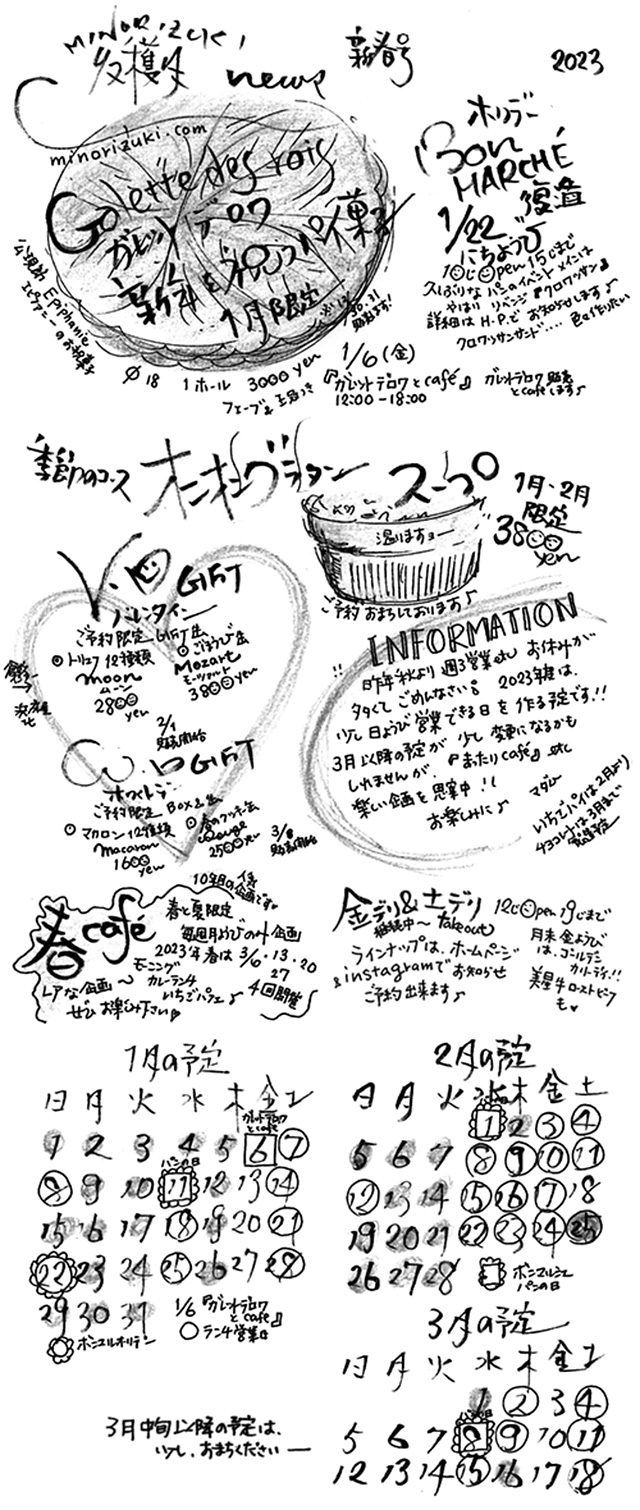 MINORIZUKI
収穫月 news 新春号 2023
minorizuki.com
Galette des rois
ガレットデロワ
新年を祝うパイ菓子
1月限定
公現節 Epiphanie
エピファニーのお祝菓子
φ18 1ホール 3000 yen
フェーブ&王冠つき
1/6(金)
『ガレットデロワとcafé』
12:00-18:00
ガレットデロワ販売
とcaféします♪
ホリデー
Bon
MARCHÉ
復活
1/22
にちようび
10じOpen 15じまで
久しぶりなパンのイベント メインは
やはりリベンジ『クロワッサン』
詳細はH.P.でお知らせします♪
クロワッサンサンド.... 色々作りたい
季節のコース オニオングラタンスープ
1月・2月
限定
3800
yen
温ますョー
ご予約おまちしております♪
V.D GIFT
バレンタイン
ご予約限定 GIFT缶
トリュフ12種類
moon
ムーン
2800
yen
ごほうび缶
Mozart
モーツァルト
3800 yen
2/1
販売開始
W.D GIFT
ホワイトデー
ご予約限定 BOX&缶
マカロン12種類
macaron
1600
yen
春のクッキー缶
2500 yen
3/8
販売開始
INFORMATION
!! 昨年秋より週3営業etc お休みが
多くてごめんなさい。2023年度は、
少し日ようび営業できる日を作る予定です!!
3月以降の予定が少し変更になるかも
しれませんが、『あったりcafé』etc
楽しい企画を思案中!!
お楽しみに♪
マダム
いちごパイは2月より
チョコレートは3月まで
製造予定
春café
10年目の企画です
春と夏限定
毎週月ようびのみ企画
2023年春は 3/6・13・20
27
4回開催
モーニング
カレーランチ
いちごパフェ♪
レアな企画〜
ぜひお楽しみ下さい
金デリ&土デリ
継続中〜 takeout
12じOpen 19じまで
ラインナップは、ホームページ
&instagramでお知らせ
ご予約出来ます♪
月末金ようび
は、ゴールデン
カルトディ!!
美星牛ローストビーフ
も♥
1月の予定
日 月 火 水 木 金 土
ガレットデロワ
とcafé
1 2 3 4 5 6 7
パンの日
8 9 10 11 12 13 14
15 16 17 18 19 20 21
22 23 24 25 26 27 28
29 30 31
1/6『ガレットデロワ
とcafé』
ボンマルシェホリデー
ランチ営業日
2月の予定
日 月 火 水 木 金 土
1 2 3 4
5 6 7 8 9 10 11
12 13 14 15 16 17 18
19 20 21 22 23 24 25
26 27 28
ボンマルシェ
パンの日
3月の予定
日 月 火 水 木 金 土
1 2 3 4
パンの日
5 6 7 8 9 10 11
12 13 14 15 16 17 18
3月中旬以降の予定は、
少し、おまちください―